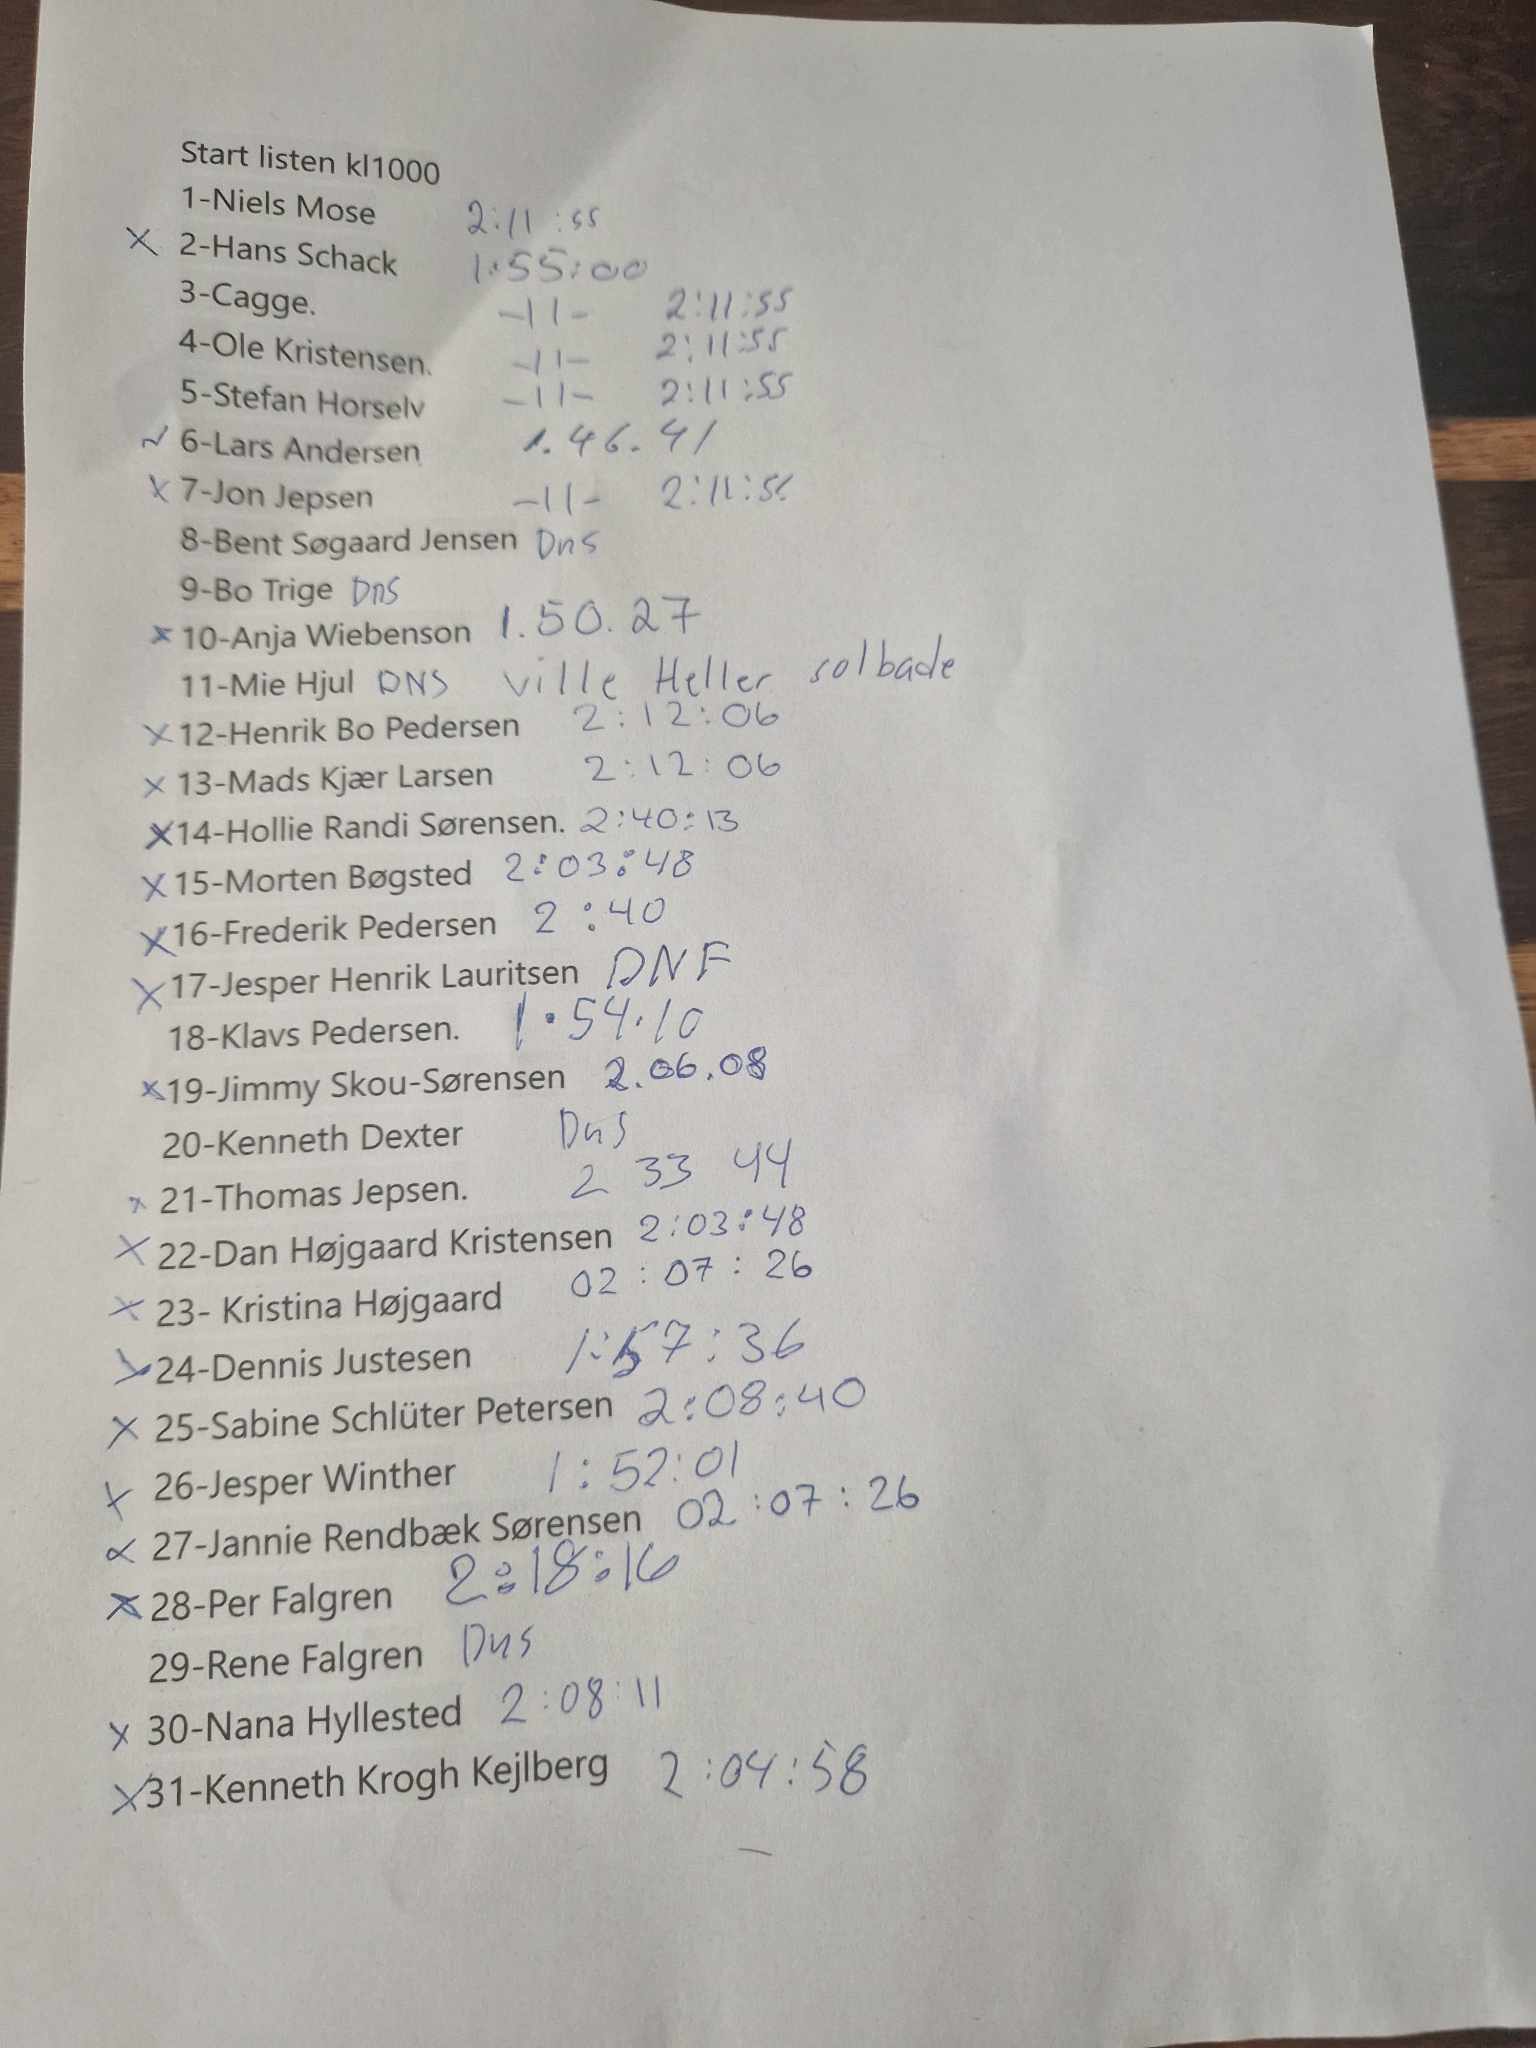 Start listen kl1000
1-Niels Mose 2:11:55
X 2-Hans Schack 1:55:00
3-Cagge. -11- 2:11:55
4-Ole Kristensen. -11- 2:11:55
5-Stefan Horselv -11- 2:11:55
6-Lars Andersen 1.46.41
X 7-Jon Jepsen -11- 2:11:55
8-Bent Søgaard Jensen Dns
9-Bo Trige Dns
X 10-Anja Wiebenson 1.50.27
11-Mie Hjul DNS ville Heller solbade
X 12-Henrik Bo Pedersen 2:12:06
X 13-Mads Kjær Larsen 2:12:06
X 14-Hollie Randi Sørensen. 2:40:13
X 15-Morten Bøgsted 2:03:48
X 16-Frederik Pedersen 2:40
X 17-Jesper Henrik Lauritsen DNF
18-Klavs Pedersen. 1.54.10
X 19-Jimmy Skou-Sørensen 2.06.08
20-Kenneth Dexter Dns
X 21-Thomas Jepsen. 2 33 44
X 22-Dan Højgaard Kristensen 2:03:48
X 23- Kristina Højgaard 02:07:26
X 24-Dennis Justesen 1:57:36
X 25-Sabine Schlüter Petersen 2:08:40
X 26-Jesper Winther 1:52:01
X 27-Jannie Rendbæk Sørensen 02:07:26
X 28-Per Falgren 2:18:16
29-Rene Falgren Dns
X 30-Nana Hyllested 2:08:11
X 31-Kenneth Krogh Kejlberg 2:04:58